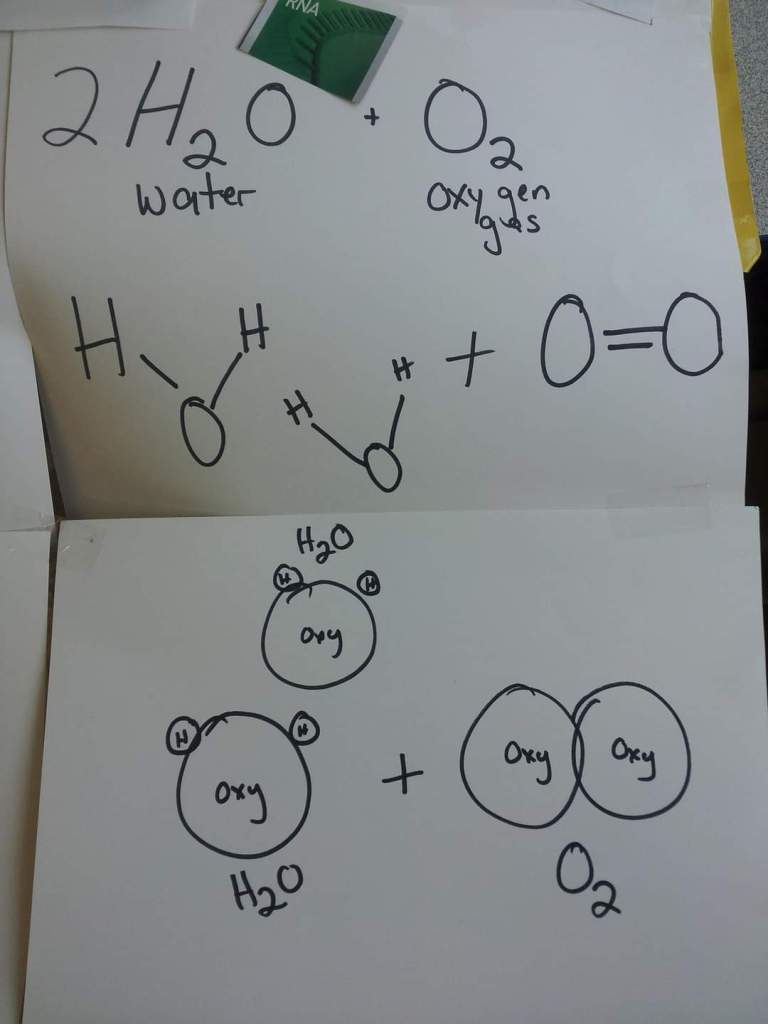 RNA
2H₂O + O₂
water oxygen
gas
H H + O=O
O
H H
O
H₂O
H H
oxy
H H
oxy + oxy oxy
H₂O O₂